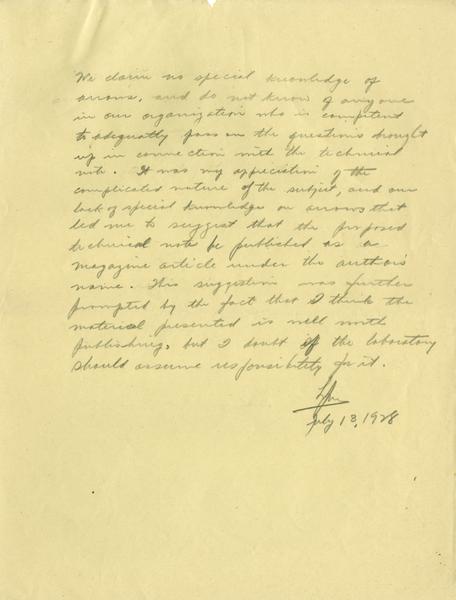 We claim no special knowledge of
arrows, and do not know of anyone
in our organization who is competent
to adequately pass on the questions brought
up in connection with the technical
note. It was my appreciation of the
complicated nature of the subject, and our
lack of special knowledge on arrows that
led me to suggest that the proposed
technical note be published as a
magazine article under the authors
name. This suggestion was further
prompted by the fact that I think the
material presented is well worth
publishing, but I doubt if the laboratory
should assume responsibility for it.
July 13, 1928